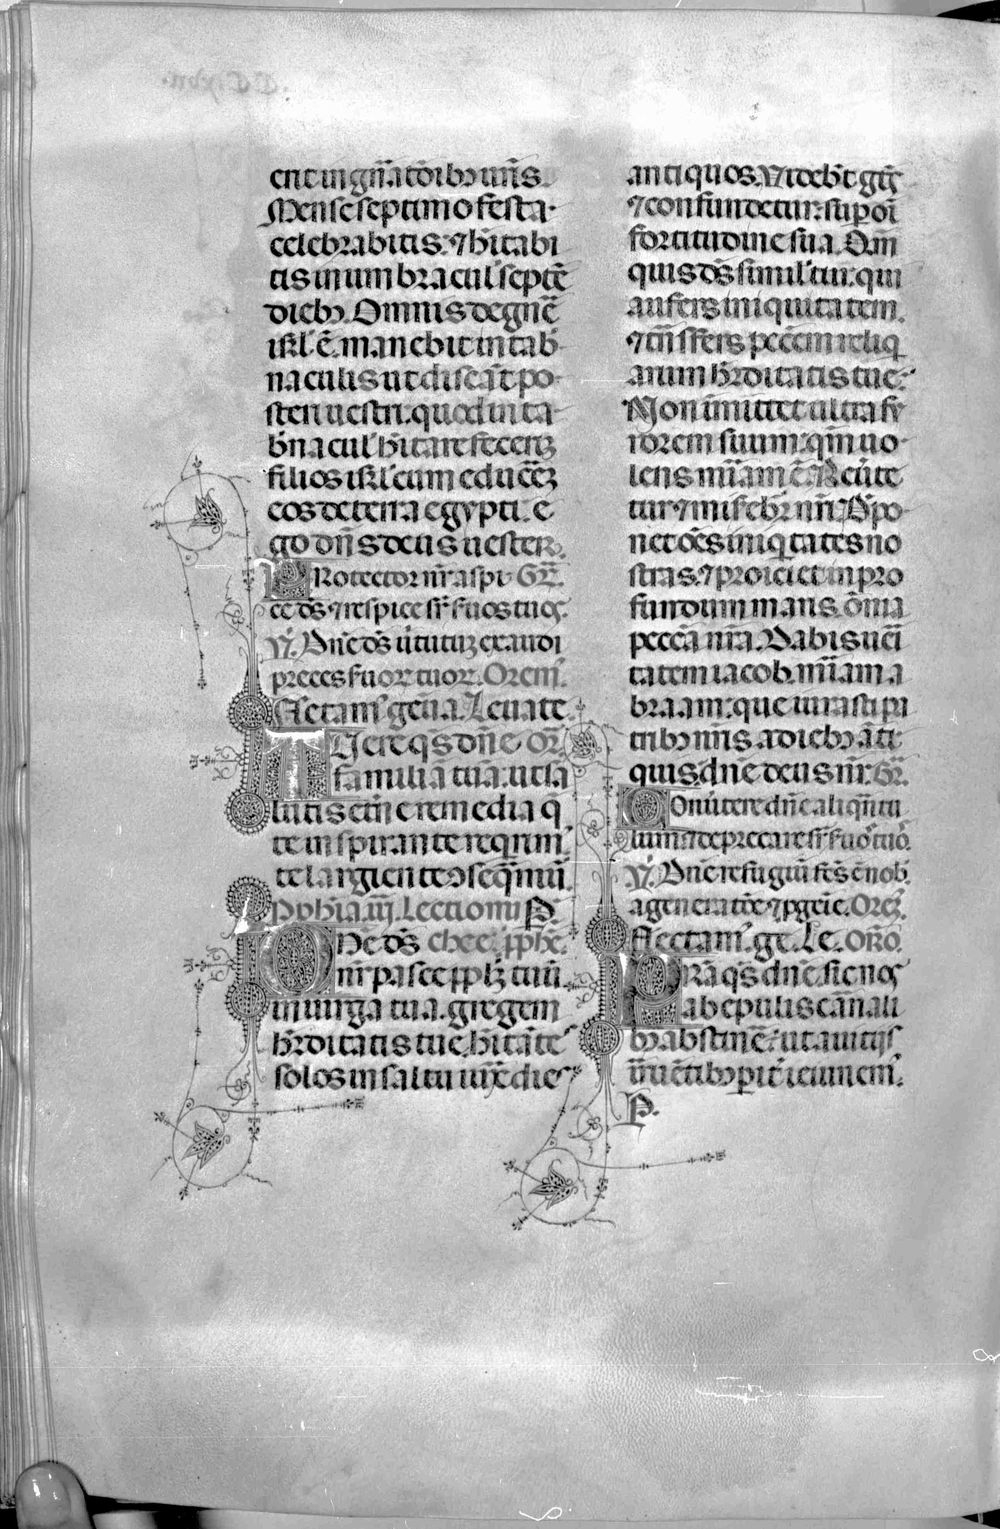 ent in gñatõibɔ ur̃is.
Mense septimo festa
celebrabitis. ⁊ hĩtabi
tis in umbracul' septẽ
diebɔ. Omnis de gñe
isrl' ẽ. manebit in tab̃
naculis ut discãt po
steri uestri. quod in ta
b̃nacul' hĩtare fecerĩ
filios isrl' cum educẽẽ
eos de terra egypti. e
go dñs deus uester.
Protector nr̃ aspi. Gr̃.
ce ds̃. ⁊ respice sr̃ seruos tuos.
V̾. Dñe ds̃ uirtutuꝫ exaudi
preces seruoꝝ tuoꝝ. Orem̃.
Flectam' genua. Leuate.
Ut cẽ qs̃ dñe or̃
familiã tuã. ut sa
lutis etñe remedia q̃
te inspirante reqrim'
te largiente ɔseq̃mur.
ꝓphĩa .iii. Lectio mi
Hec
nr̃ pasce ppl'ꝫ tuũ
in uirga tua. gregem
hr̃ditatis tue. hĩtãte
solos in saltu iuxta dies
antiquos. Videbt̃ gẽs
⁊ confundetur. sup oĩ
fortitudine sua. Om̃
quis ds̃ simil' tui. qui
aufers iniquitatem.
⁊ trãsfers peccm̃ reliq
iarum hr̃ditatis tue.
Non imittet ultra fu
rorem suum. qm̃ uo
lens mĩam ẽ. Reũte
tur ⁊ misebr̃ nr̃i. Dpo
net oẽs iniqtates no
stras. ⁊ proiciet in pro
fundum maris. om̃ia
peccã nr̃a. Dabis ueri
tatem iacob. mĩam a
braam. que iurasti pa
tribɔ nr̃is. a diebɔ ãti
quis. dñe deus nr̃. Gr̃.
Conũtere dñe aliqñtu
lum. ⁊ deprecare sr̃ seruos tuos.
V̾. Dñe refugiũ fcs̃ ẽ nob̃.
a generatõe ⁊ pgẽie. Orem̃.
Flectam'. ge. Le. Orõ.
Pra qs̃ dñe sic nos
ab epulis carnali
bɔ abstinẽ. ut a uitijs
irruẽtibɔ pit̃ ieiunem'.
P.